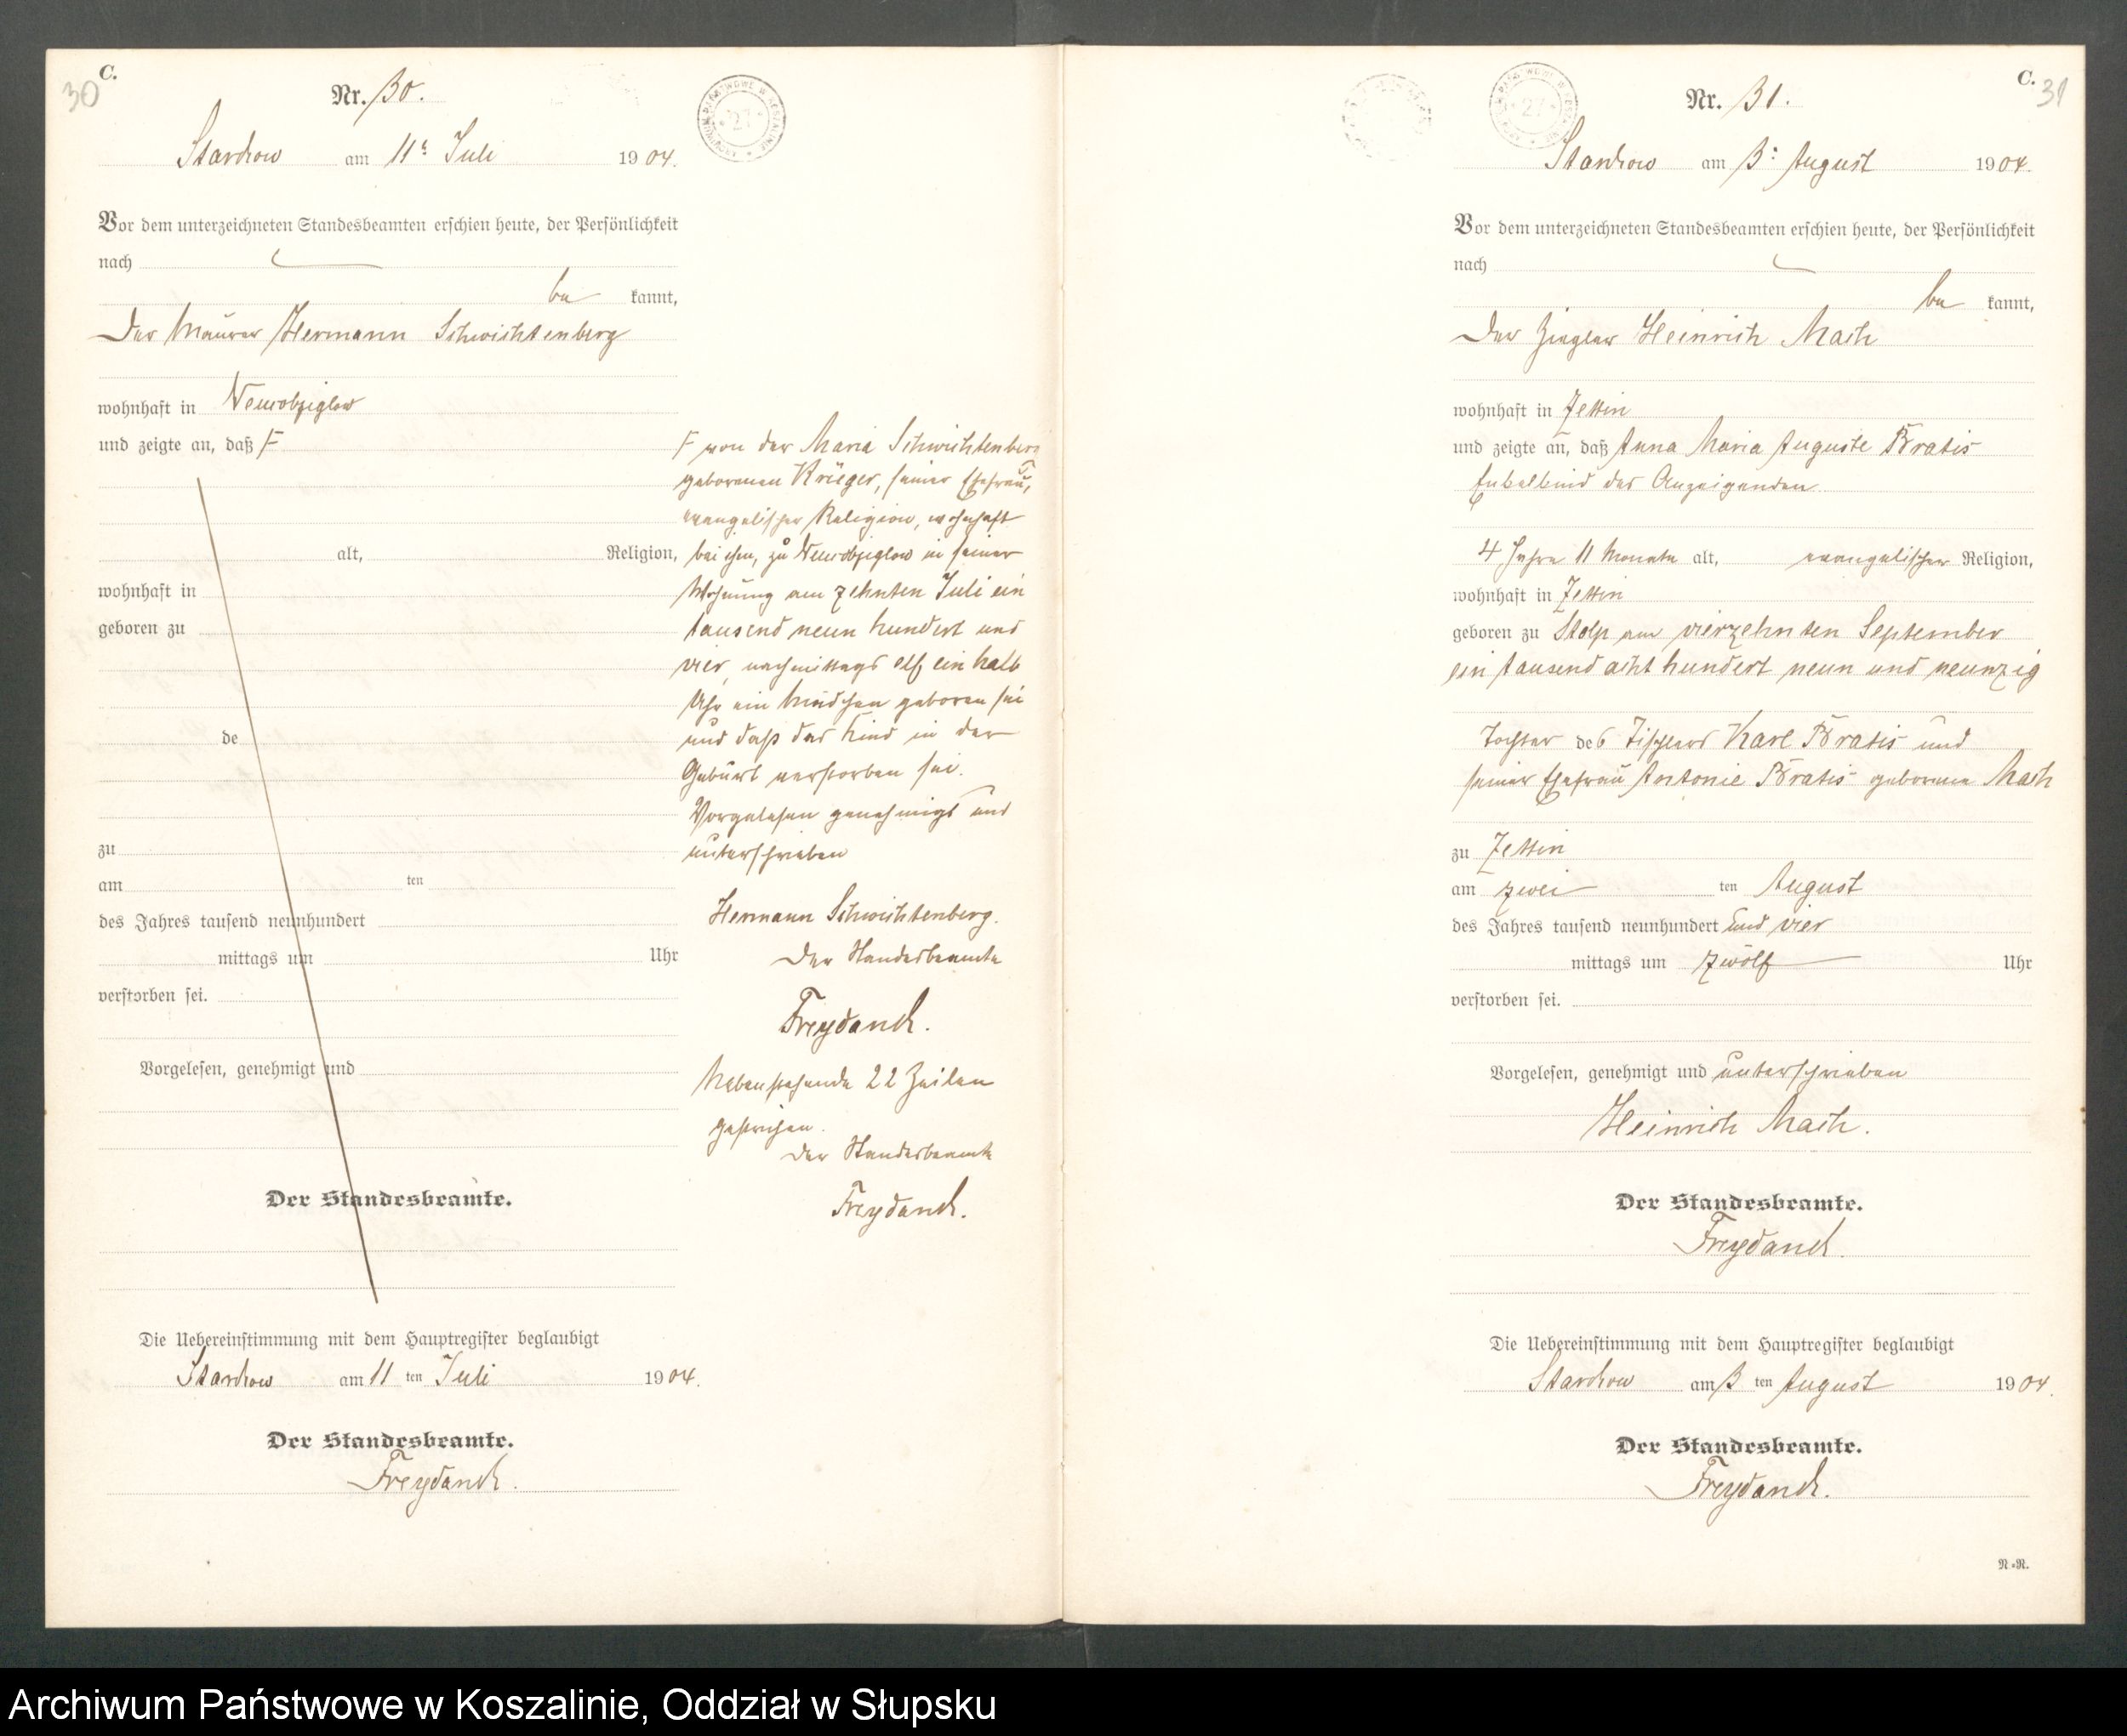 C.
30
Nr. 30.
Starckow am 11ᵗ Juli 1904.
Vor dem unterzeichneten Standesbeamten erschien heute, der Persönlichkeit
nach
be kannt,
der Maurer Hermann Schwichtenberg
wohnhaft in Neuwobziglow
und zeigte an, daß F
alt, Religion,
wohnhaft in
geboren zu
de
zu
am ten
des Jahres tausend neunhundert
mittags um Uhr
verstorben sei.
Vorgelesen, genehmigt und
Der Standesbeamte.
Die Uebereinstimmung mit dem Hauptregister beglaubigt
Starckow am 11 ten Juli 1904.
Der Standesbeamte.
Freydanck.
F von der Maria Schwichtenberg
geborenen Krüger, seiner Ehefrau,
evangelischer Religion, wohnhaft
bei ihm, zu Neuwobziglow in seiner
Wohnung am zehnten Juli ein
tausend neun hundert und
vier, nachmittags elf ein halb
Uhr ein Mädchen geboren sei
und daß das Kind in der
Geburt verstorben sei.
Vorgelesen genehmigt und
unterschrieben
Hermann Schwichtenberg.
Der Standesbeamte
Freydanck.
Nebenstehende 22 Zeilen
gestrichen.
Der Standesbeamte
Freydanck.
C.
31
Nr. 31.
Starckow am 3ᵗ August 1904.
Vor dem unterzeichneten Standesbeamten erschien heute, der Persönlichkeit
nach
be kannt,
der Ziegler Heinrich Mach
wohnhaft in Zettin
und zeigte an, daß Anna Maria Auguste Bratis
Enkelkind des Anzeigenden
4 Jahre 11 Monate alt, evangelischer Religion,
wohnhaft in Zettin
geboren zu Stolp am vierzehnten September
ein tausend acht hundert neun und neunzig
Tochter des Tischlers Karl Bratis und
seiner Ehefrau Antonie Bratis geborene Mach
zu Zettin
am zwei ten August
des Jahres tausend neunhundert und vier
mittags um zwölf Uhr
verstorben sei.
Vorgelesen, genehmigt und unterschrieben
Heinrich Mach.
Der Standesbeamte.
Freydanck.
Die Uebereinstimmung mit dem Hauptregister beglaubigt
Starckow am 3 ten August 1904.
Der Standesbeamte.
Freydanck.
N.=N.
Archiwum Państwowe w Koszalinie, Oddział w Słupsku